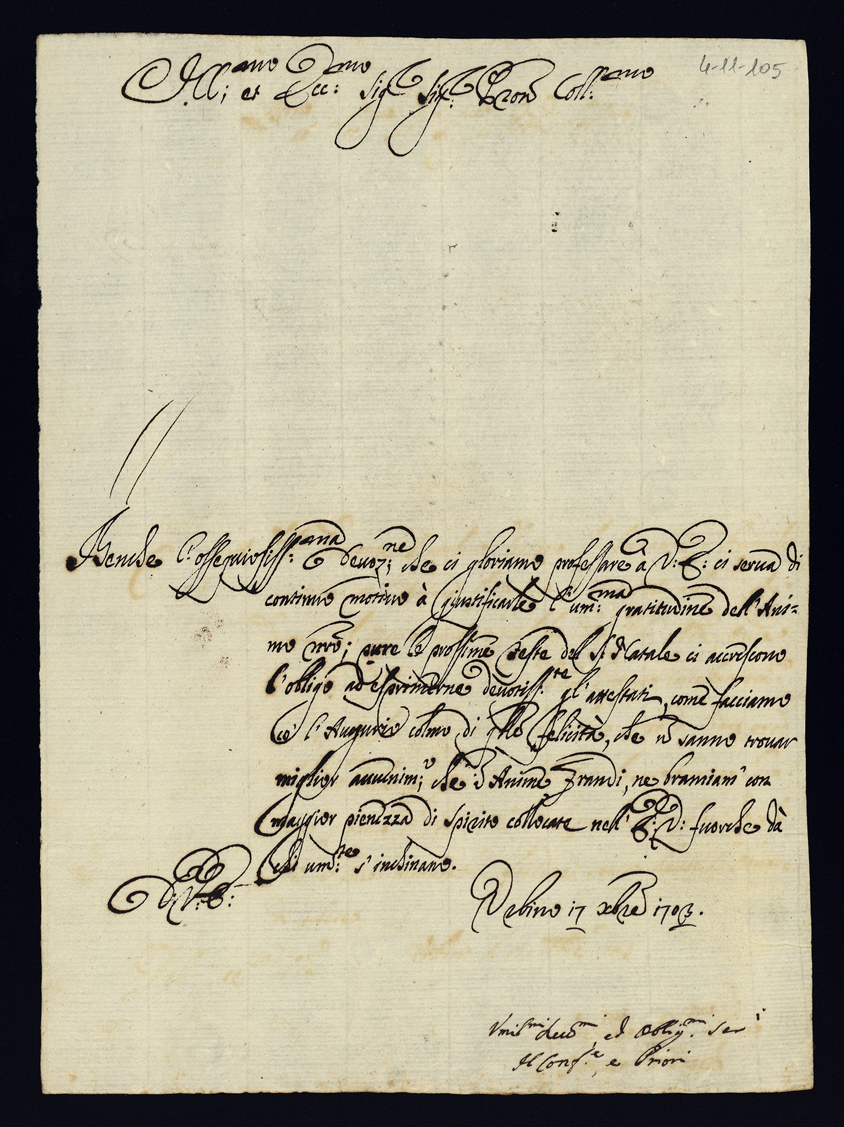 4-11-105
Ill:mo et Ecc:mo Sig:r Sig:r Pron Coll:mo
Benche l'ossequiosiss:ma e devoz:ne che ci gloriamo professare à V: E: ci serva di
continuo motivo à giustificarle l'um:ma gratitudine dell'Ani=
mo nro; pure le prossime Feste del S. Natale ci accrescono
l'obligo ad esprimerne devotiss:te gl'attestati, come facciamo
cò l'Augurio colmo di qlle felicità, che n sanno trovar
miglior che Animi Grandi, ne bramiam' con
maggior pienezza di spirito collocate nell' E: V: fuorche da
chi um:te s'inchinano.
Di V: E:
Urbino 17 xbre 1703.
Umil:mi devo:mi ed Oblig:mi Ser:i
Il Conf:re, e Priori